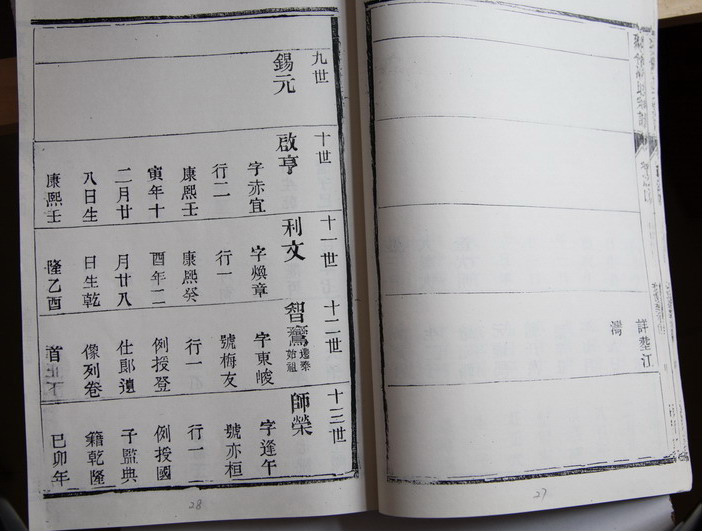 詳墊江
灣
27
九世
錫元
十世
啟亨
字赤宜
行二
康熙壬
寅年十
二月廿
八日生
康熙壬
十一世
利文
字煥章
行一
康熙癸
酉年二
月廿八
日生乾
隆乙酉
十二世
智鸞
遷秦
始祖
字東峻
號梅友
行一
例授登
仕郎遺
像列卷
首止下
十三世
師榮
字逢午
號亦桓
行一
例授國
子監典
籍乾隆
己卯年
28